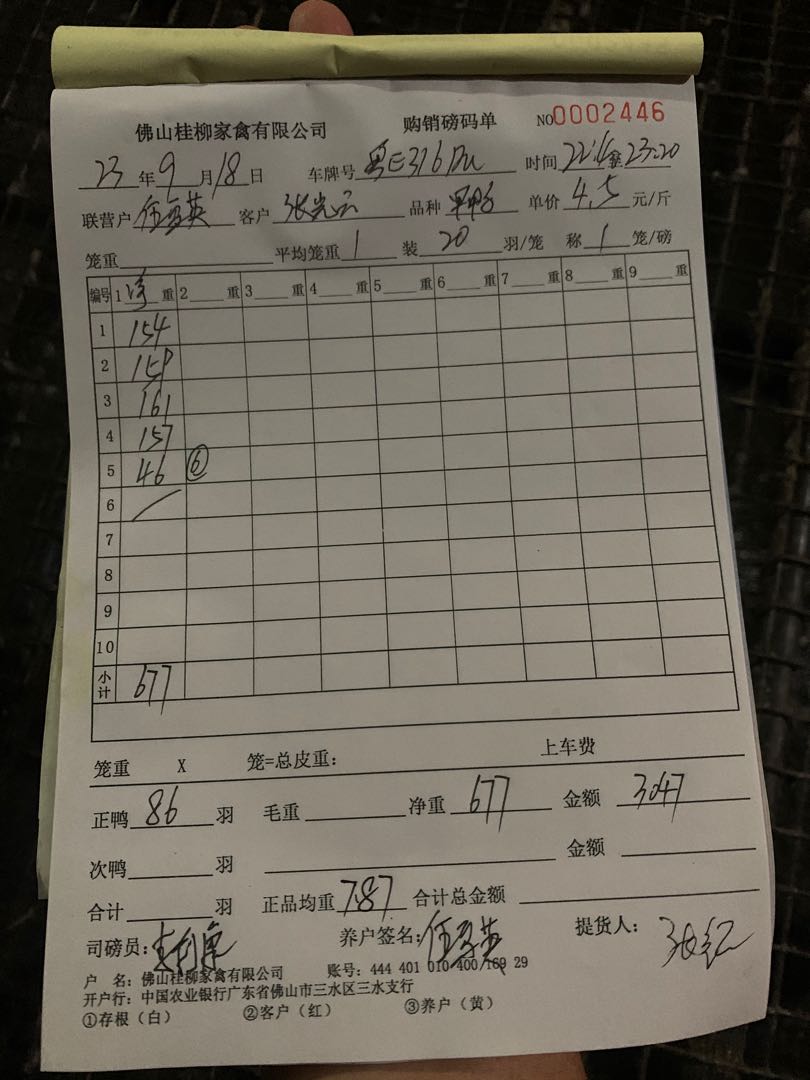 佛山桂柳家禽有限公司 购销磅码单 NO0002446
23年9月18日 车牌号 粤E316 时间 22:1 23:20
联营户 任 英 客户 张光云 品种 单价 4.5 元/斤
笼重 平均笼重 1 装 20 羽/笼 称 1 笼/磅
编号 1 净 重 2 重 3 重 4 重 5 重 6 重 7 重 8 重 9 重
1 154
2 159
3 161
4 157
5 46 ⑥
6
7
8
9
10
小计 677
笼重 X 笼=总皮重: 上车费
正鸭 86 羽 毛重 净重 677 金额 3047
次鸭 羽 金额
合计 羽 正品均重 7.87 合计总金额
司磅员: 养户签名: 任 英 提货人: 张
户 名: 佛山桂柳家禽有限公司 账号: 444 401 010 400 169 29
开户行: 中国农业银行广东省佛山市三水区三水支行
①存根(白) ②客户(红) ③养户(黄)